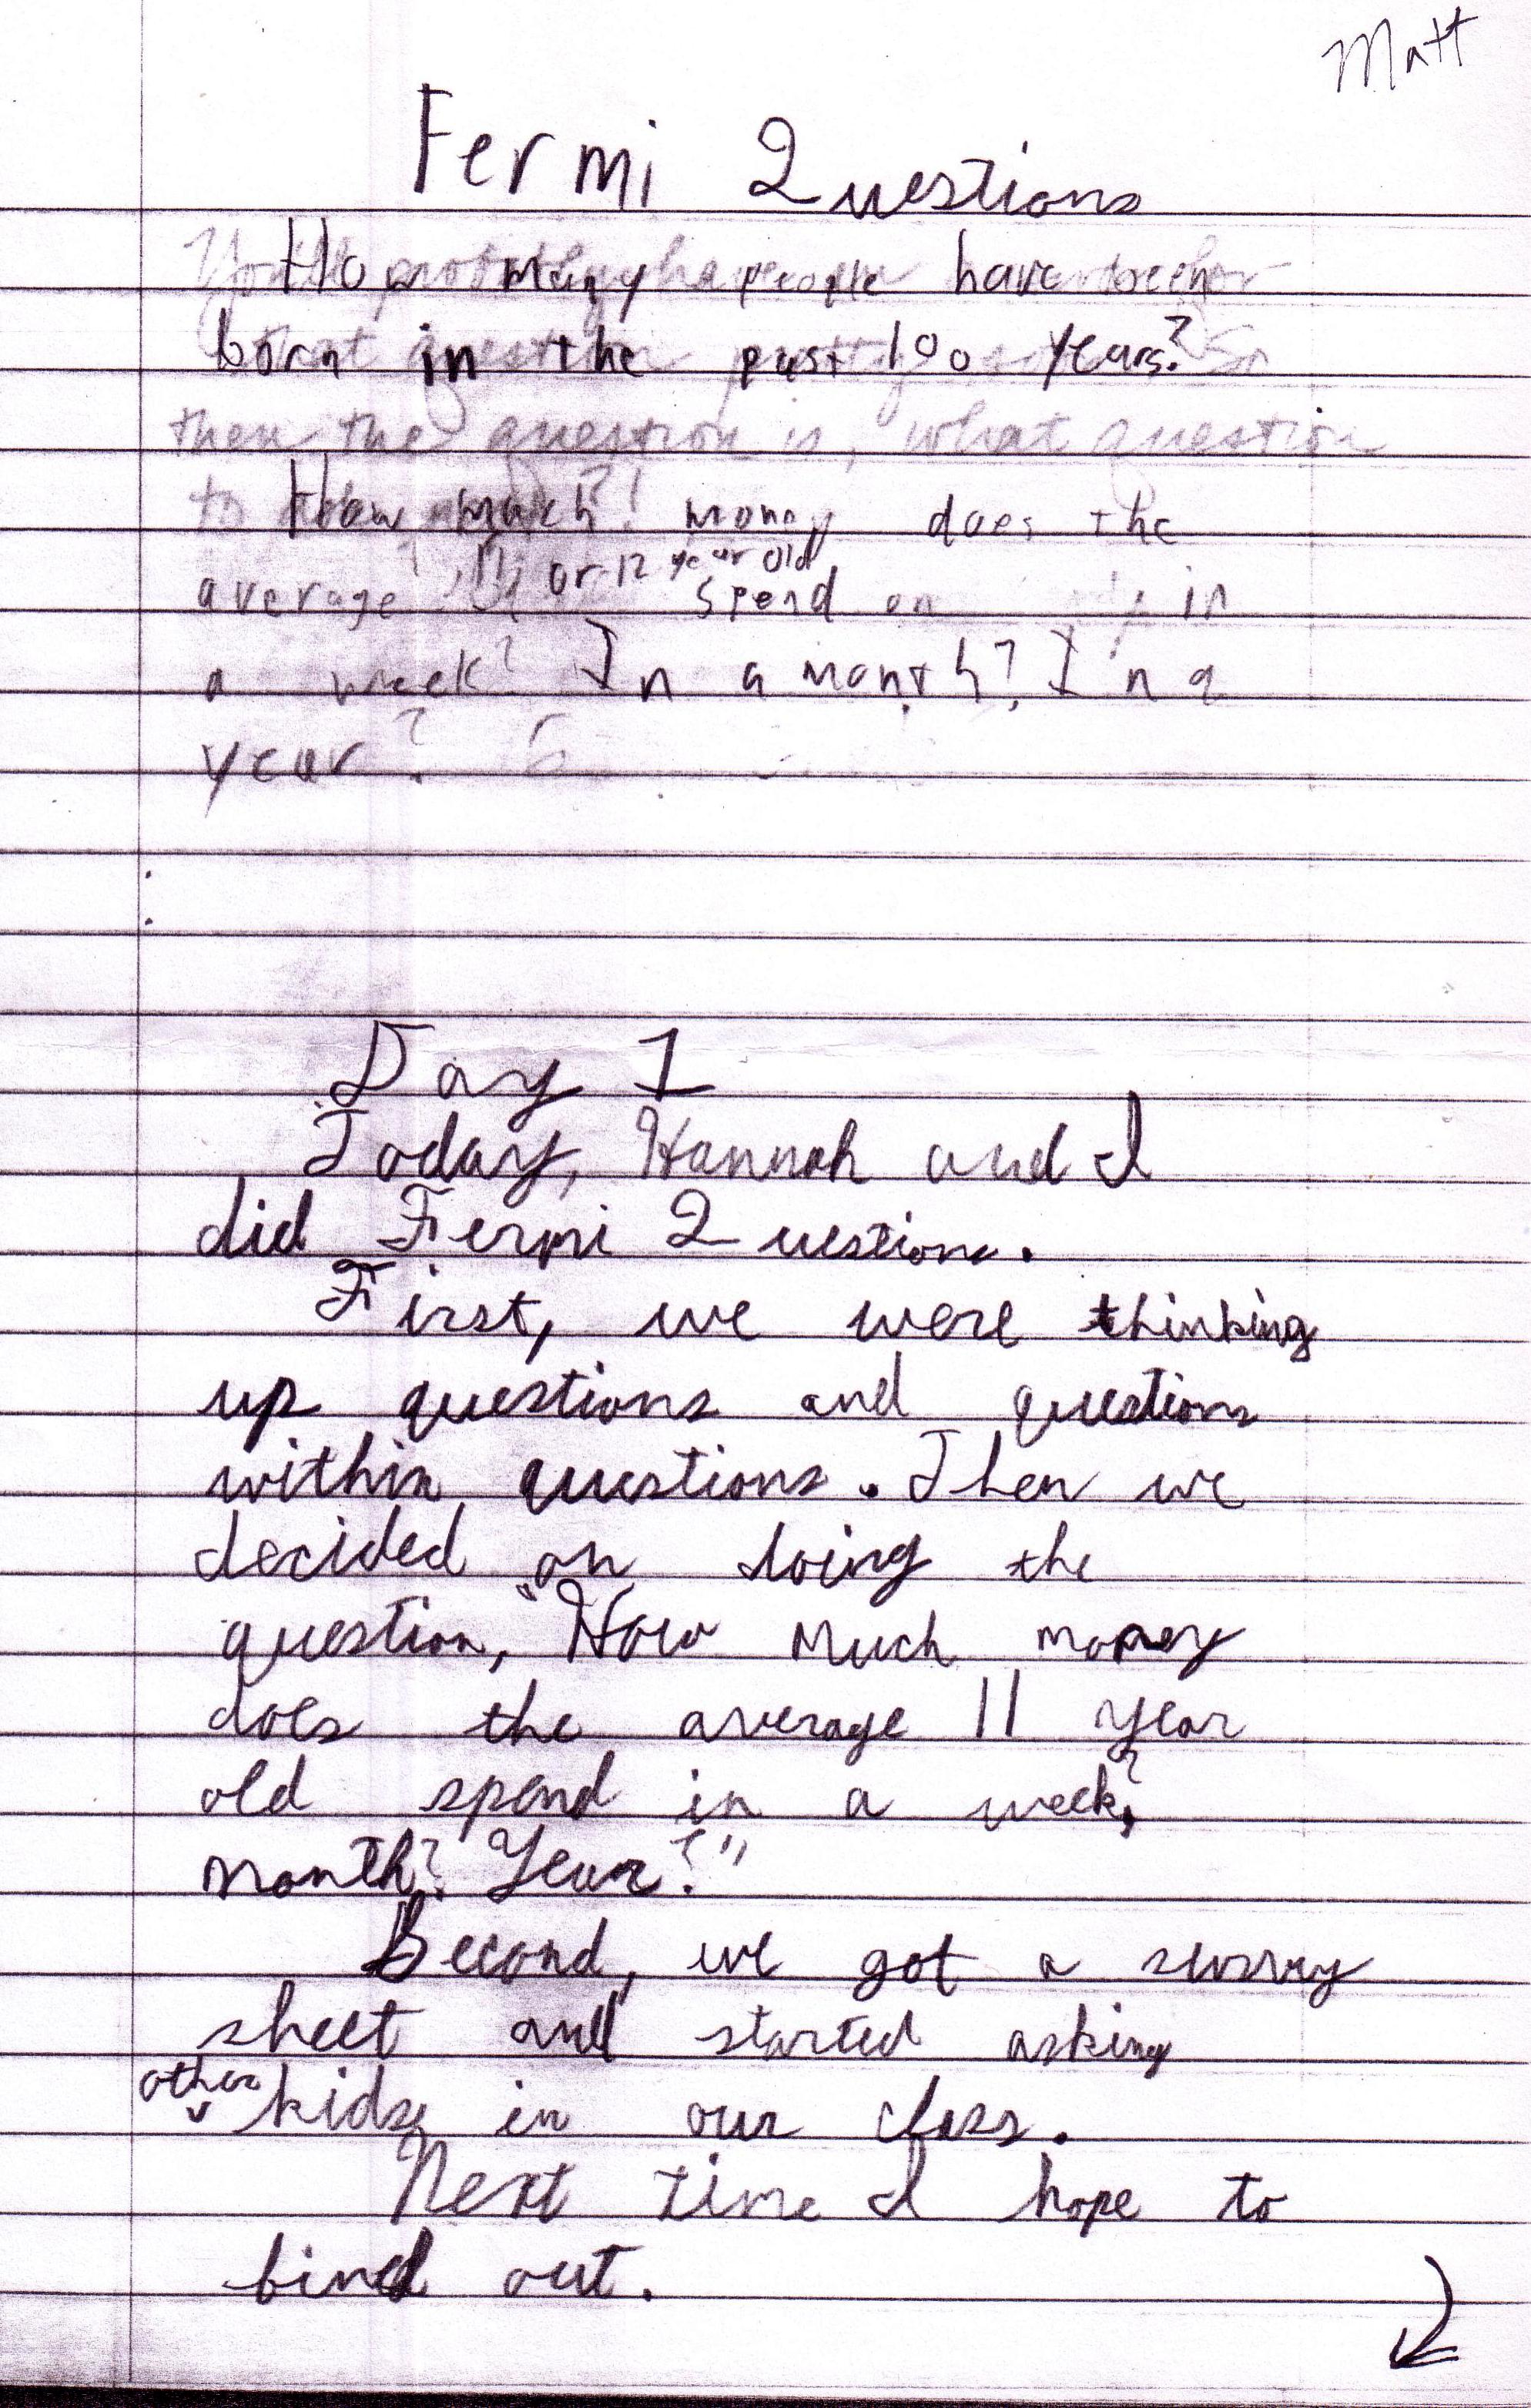 Matt
Fermi Questions
How many people have been
born in the past 100 years?
then the question is, what question
to
How much money does the
11, or 12 year old
average spend on in
a week? In a month? In a
year?
Day 1
Today, Hannah and I
did Fermi Questions.
First, we were thinking
up questions and questions
within questions. Then we
decided on doing the
question, "How much money
does the average 11 year
old spend in a week?
month? Year?"
Second, we got a survey
sheet and started asking
other
kids in our class.
Next time I hope to
find out.